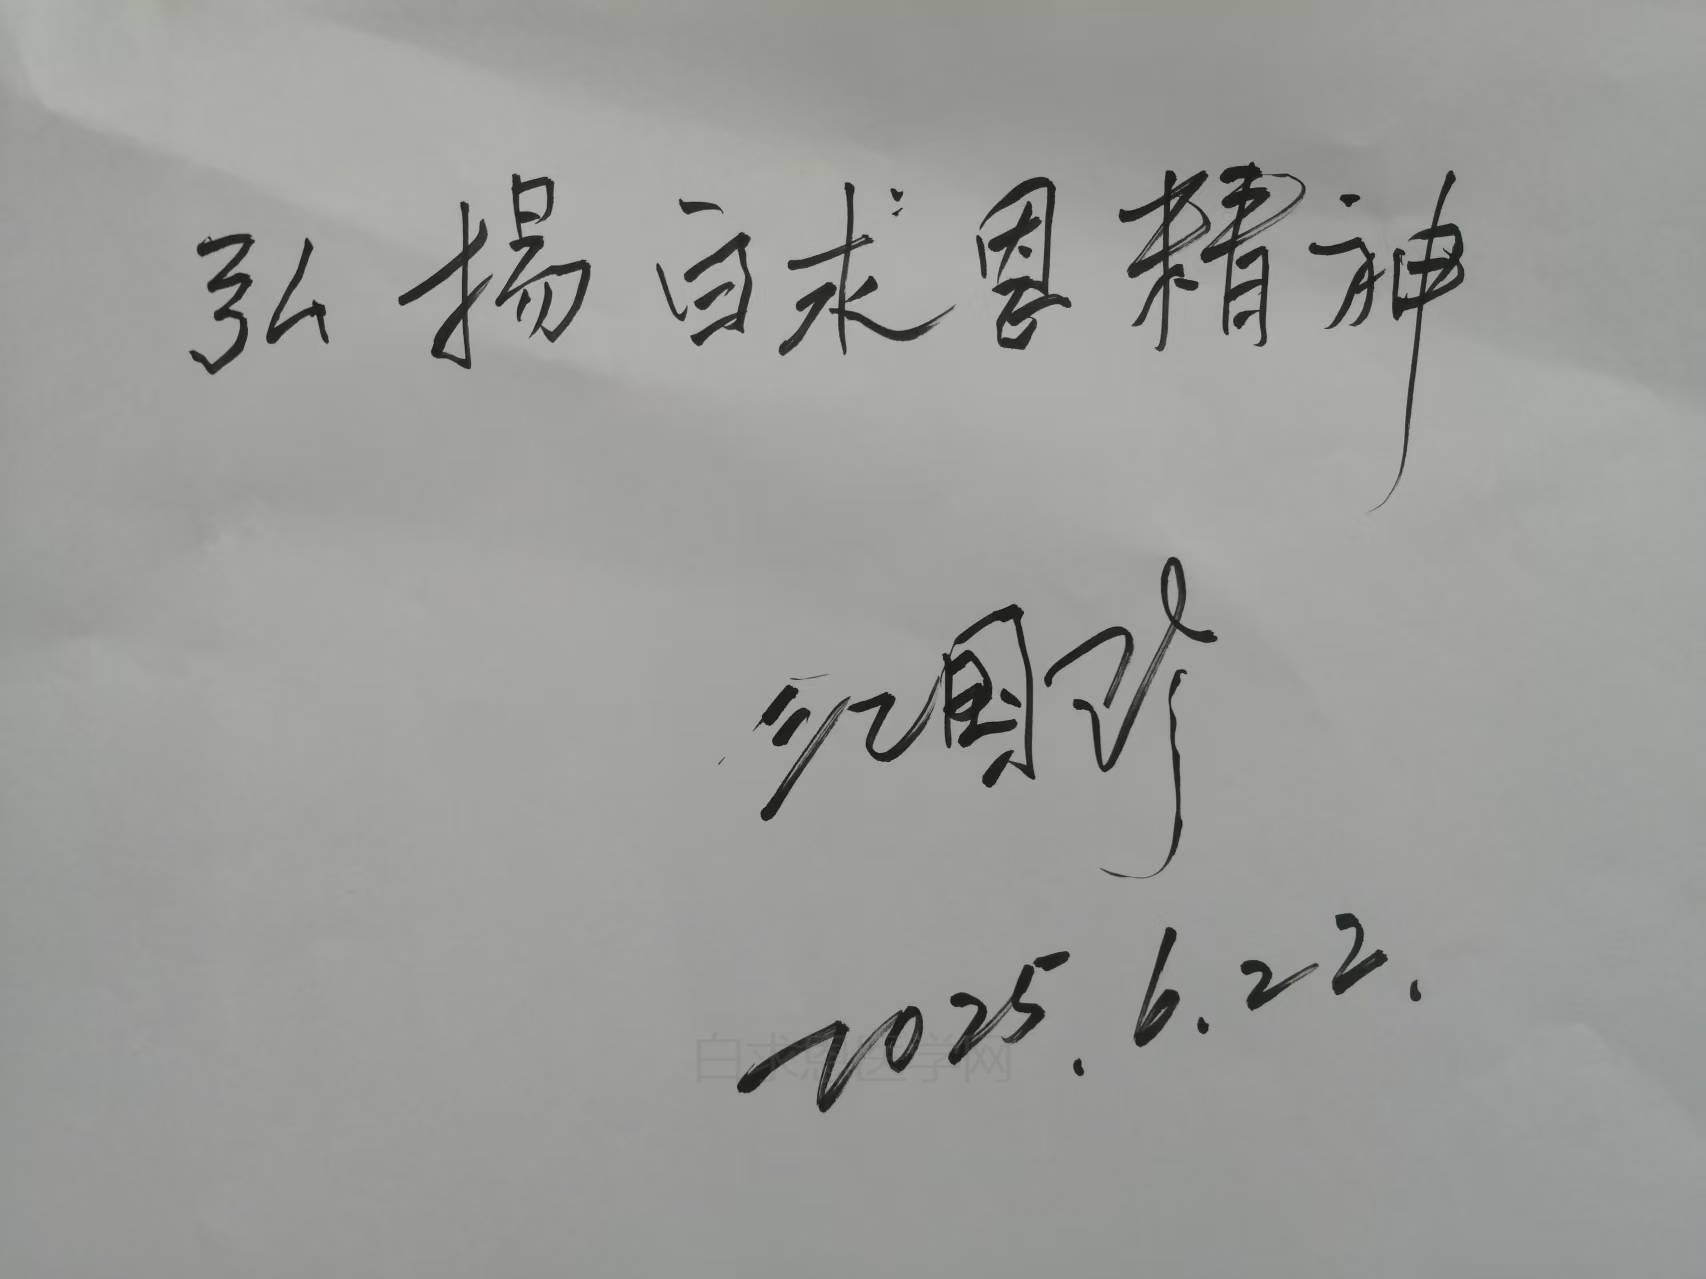 弘揚白求恩精神
江国珍
2025.6.22.
白求恩医学网